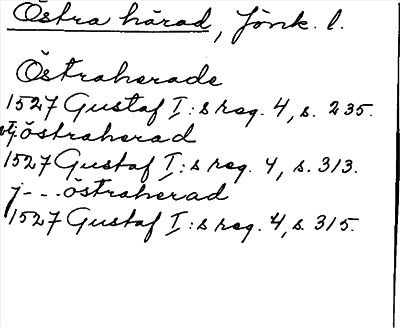 Östra härad, Jönk. l.
Östraherade
1527 Gustaf I:s reg. 4, s. 235.
j östraherad
1527 Gustaf I:s reg. 4, s. 313.
j---östraherad
1527 Gustaf I:s reg. 4, s. 315.